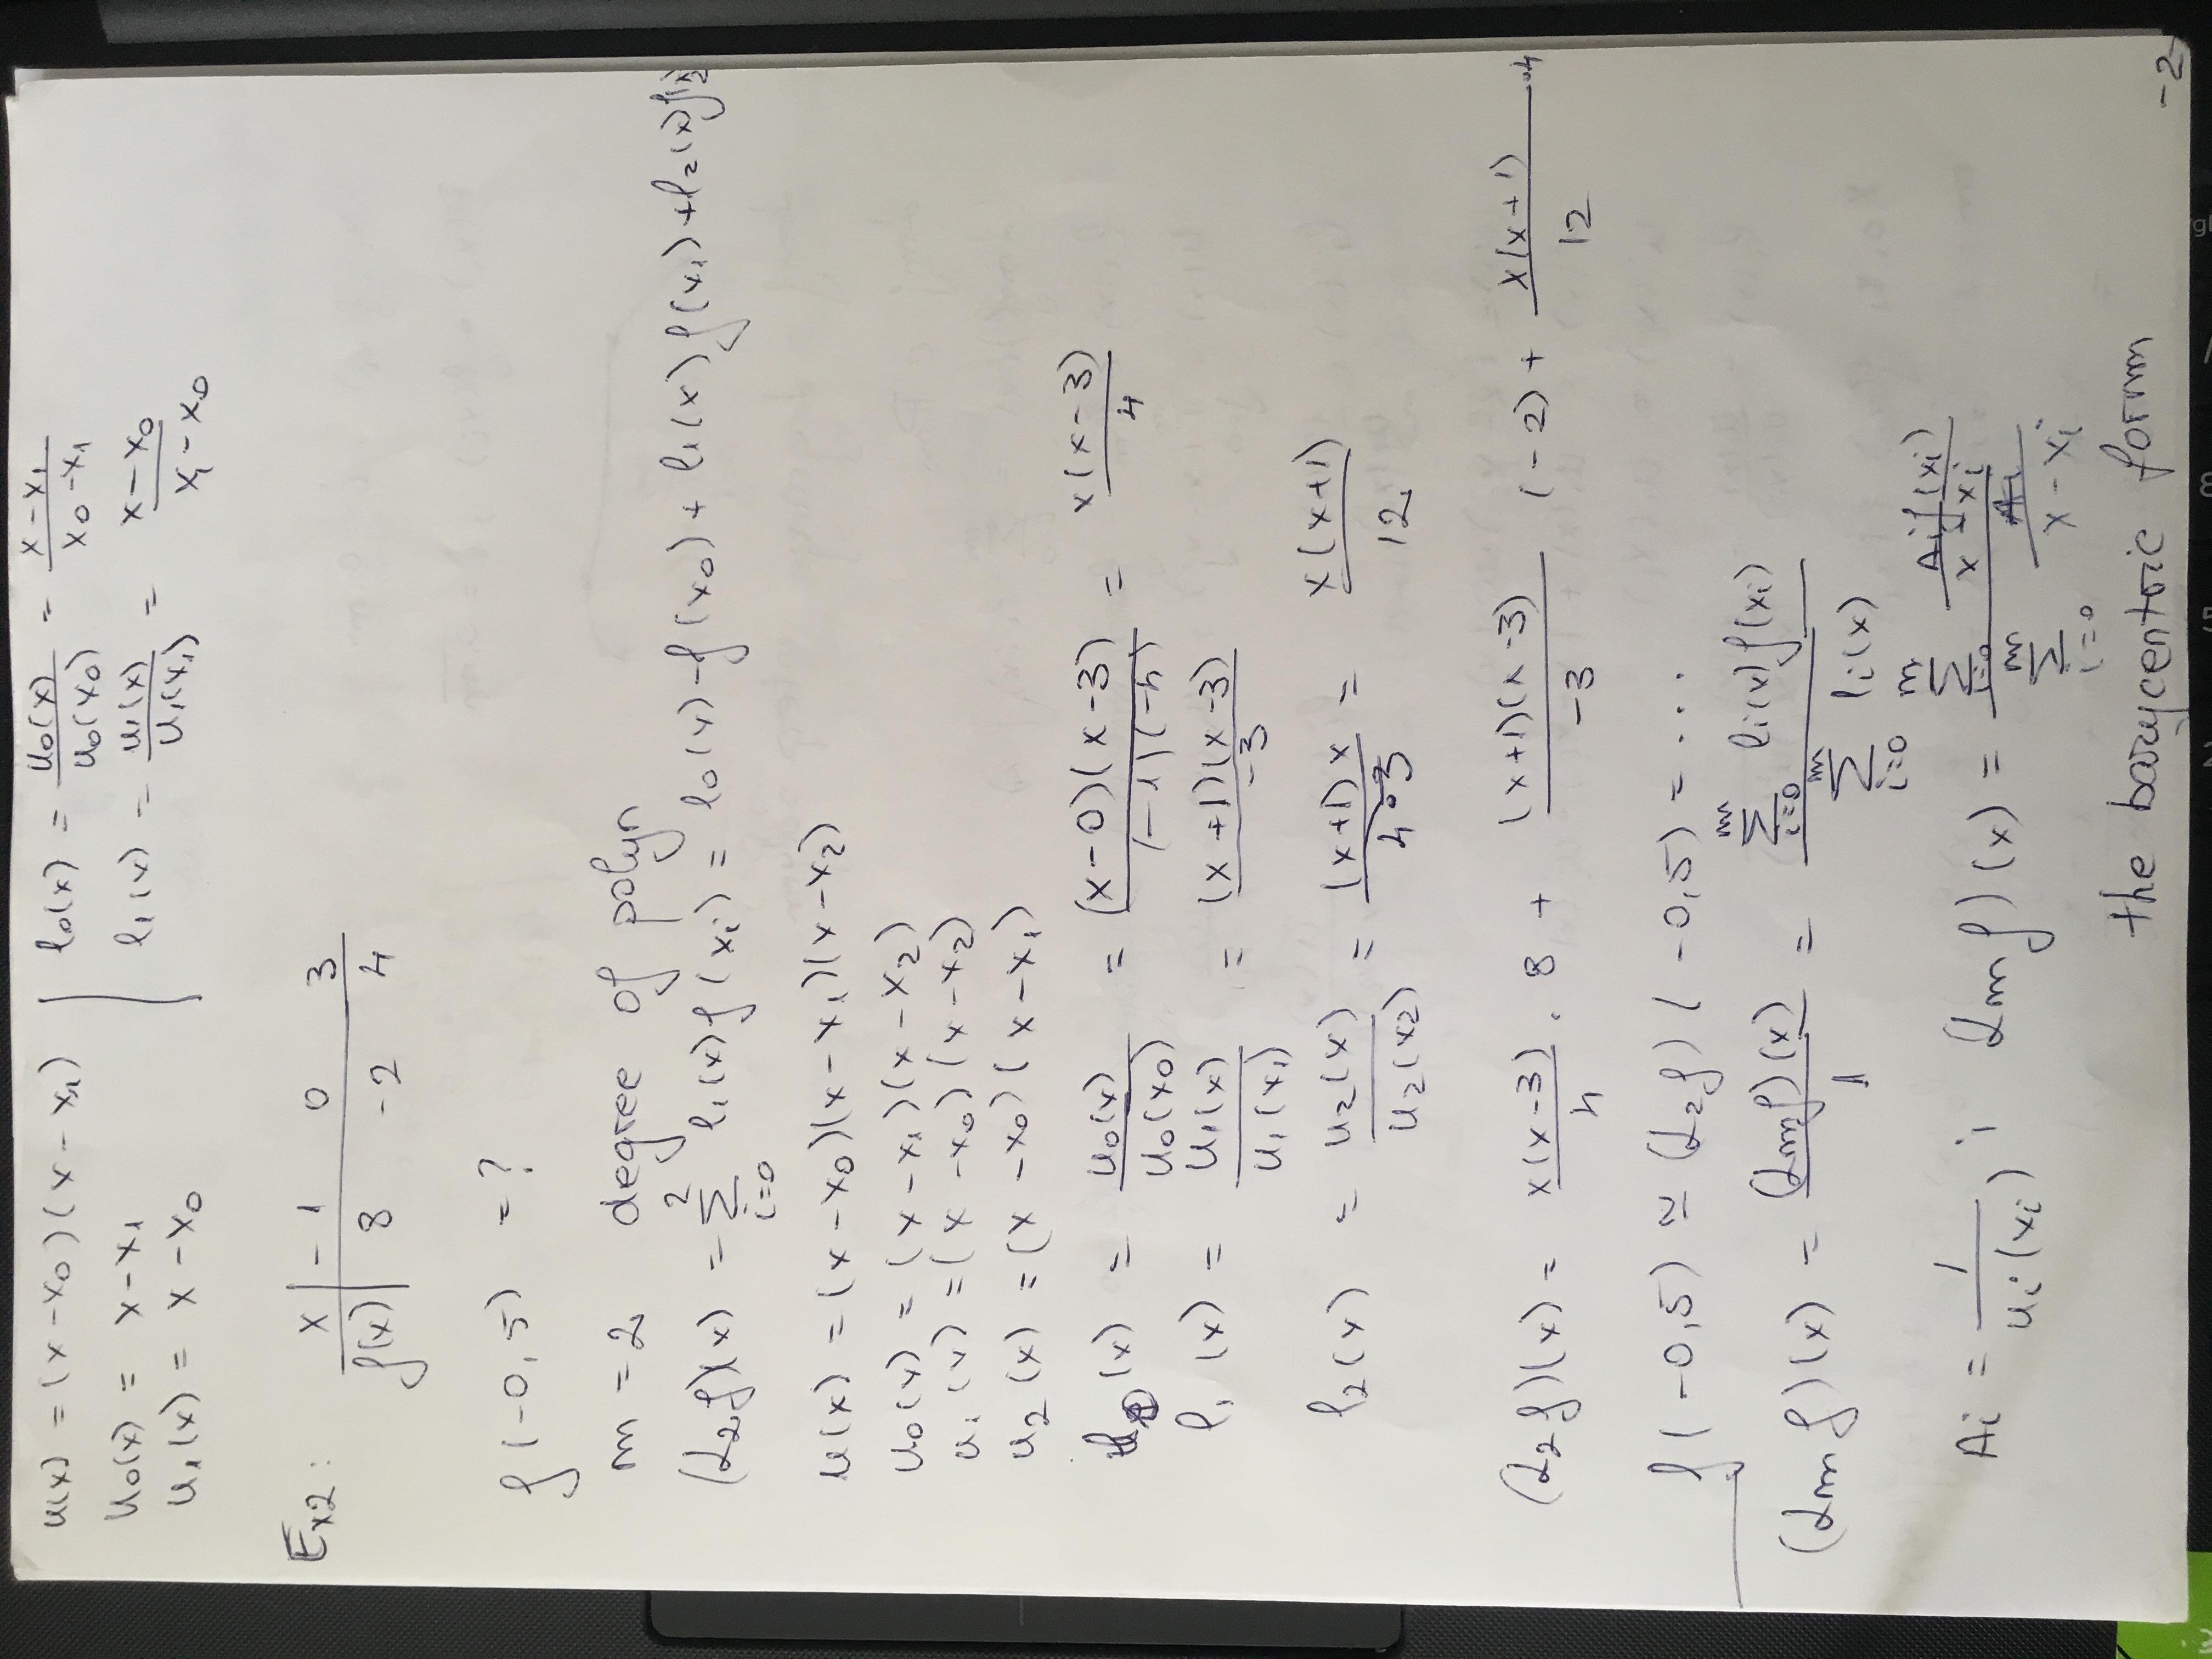 u(x) = (x-x₀)(x-x₁)
u₀(x) = x-x₁
u₁(x) = x-x₀
l₀(x) = u₀(x)/u₀(x₀) = (x-x₁)/(x₀-x₁)
l₁(x) = u₁(x)/u₁(x₁) = (x-x₀)/(x₁-x₀)
Ex2:
x | -1 0 3
f(x) | 8 -2 4
f(-0,5) = ?
m = 2 degree of polyn
(L₂f)(x) = Σ_{i=0}^{2} lᵢ(x)f(xᵢ) = l₀(x)f(x₀) + l₁(x)f(x₁) + l₂(x)f(x₂)
u(x) = (x-x₀)(x-x₁)(x-x₂)
u₀(x) = (x-x₁)(x-x₂)
u₁(x) = (x-x₀)(x-x₂)
u₂(x) = (x-x₀)(x-x₁)
l₀(x) = u₀(x)/u₀(x₀) = (x-0)(x-3)/(-1)(-4) = x(x-3)/4
l₁(x) = u₁(x)/u₁(x₁) = (x+1)(x-3)/-3
l₂(x) = u₂(x)/u₂(x₂) = (x+1)x/4·3 = x(x+1)/12
(L₂f)(x) = x(x-3)/4 · 8 + (x+1)(x-3)/-3 (-2) + x(x+1)/12 ·4
f(-0,5) ≅ (L₂f)(-0,5) = ...
(Lmf)(x) = (Lmf)(x)/1 = Σ_{i=0}^{m} lᵢ(x)f(xᵢ) / Σ_{i=0}^{m} lᵢ(x)
Aᵢ = 1/uᵢ(xᵢ) ; (Lmf)(x) = Σ_{i=0}^{m} Aᵢf(xᵢ)/(x-xᵢ) / Σ_{i=0}^{m} Aᵢ/(x-xᵢ)
the barycentric form
-2-